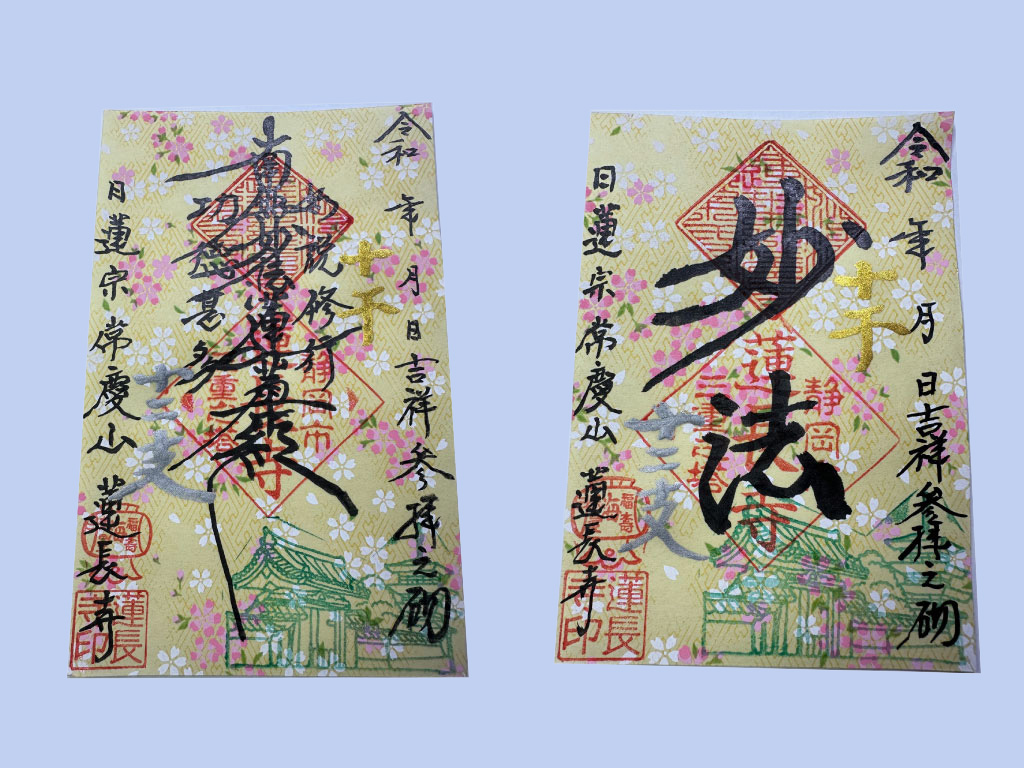 令和 年 月 日 吉祥 参拝之砌
十干
如説修行
南無妙法蓮華経
功徳甚多
十二支
日蓮宗 常慶山 蓮長寺
静岡市
蓮長寺印
令和 年 月 日 吉祥 参拝之砌
十干
妙法
十二支
日蓮宗 常慶山 蓮長寺
静岡
蓮長寺
福寿
蓮長寺印